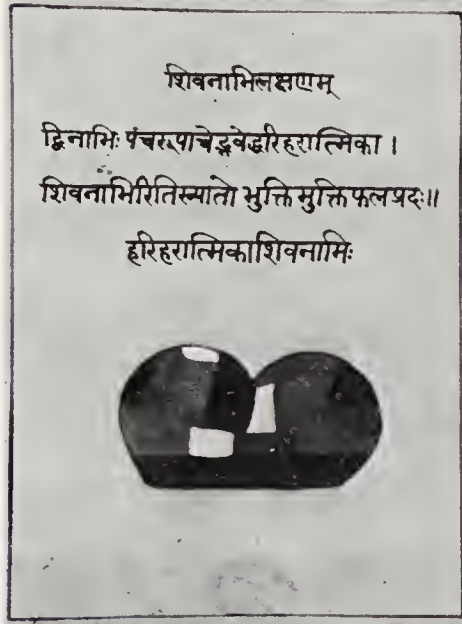 शिवनाभिलक्षणम्
द्विनाभिः पंचरूपाचेद्भवेद्धरिहरात्मिका ।
शिवनाभिरितिख्यातो भुक्तिमुक्तिफलप्रदः॥
हरिहरात्मिकाशिवनाभिः